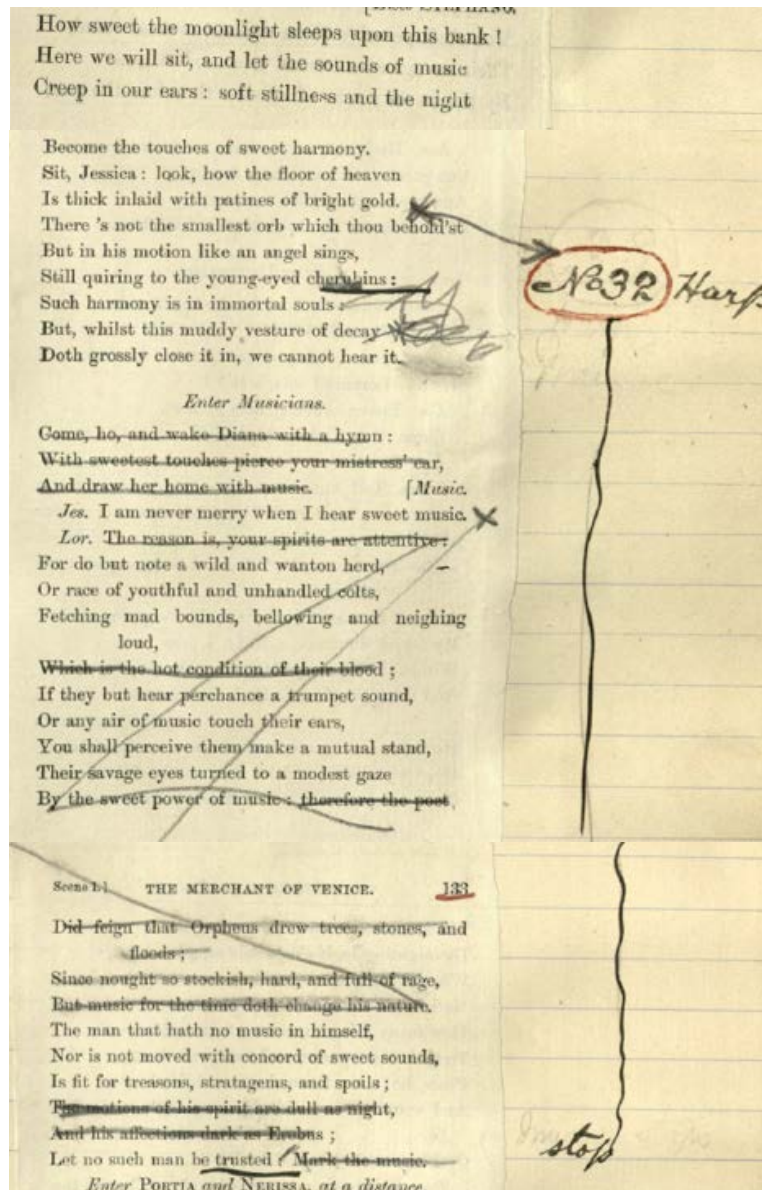 How sweet the moonlight sleeps upon this bank !
Here we will sit, and let the sounds of music
Creep in our ears : soft stillness and the night
Become the touches of sweet harmony.
Sit, Jessica : look, how the floor of heaven
Is thick inlaid with patines of bright gold.
There 's not the smallest orb which thou behold'st
But in his motion like an angel sings,
Still quiring to the young-eyed cherubins :
No 32 Harp
Such harmony is in immortal souls :
But, whilst this muddy vesture of decay
Doth grossly close it in, we cannot hear it.
Enter Musicians.
Come, ho, and wake Diana with a hymn :
With sweetest touches pierce your mistress' ear,
And draw her home with music. [Music.
Jes. I am never merry when I hear sweet music.
Lor. The reason is, your spirits are attentive :
For do but note a wild and wanton herd,
Or race of youthful and unhandled colts,
Fetching mad bounds, bellowing and neighing
loud,
Which is the hot condition of their blood ;
If they but hear perchance a trumpet sound,
Or any air of music touch their ears,
You shall perceive them make a mutual stand,
Their savage eyes turned to a modest gaze
By the sweet power of music : therefore the poet
Scene I.] THE MERCHANT OF VENICE. 133
Did feign that Orpheus drew trees, stones, and
floods ;
Since nought so stockish, hard, and full of rage,
But music for the time doth change his nature.
The man that hath no music in himself,
Nor is not moved with concord of sweet sounds,
Is fit for treasons, stratagems, and spoils ;
The motions of his spirit are dull as night,
And his affections dark as Erebus ;
Let no such man be trusted : Mark the music.
stop
Enter PORTIA and NERISSA, at a distance